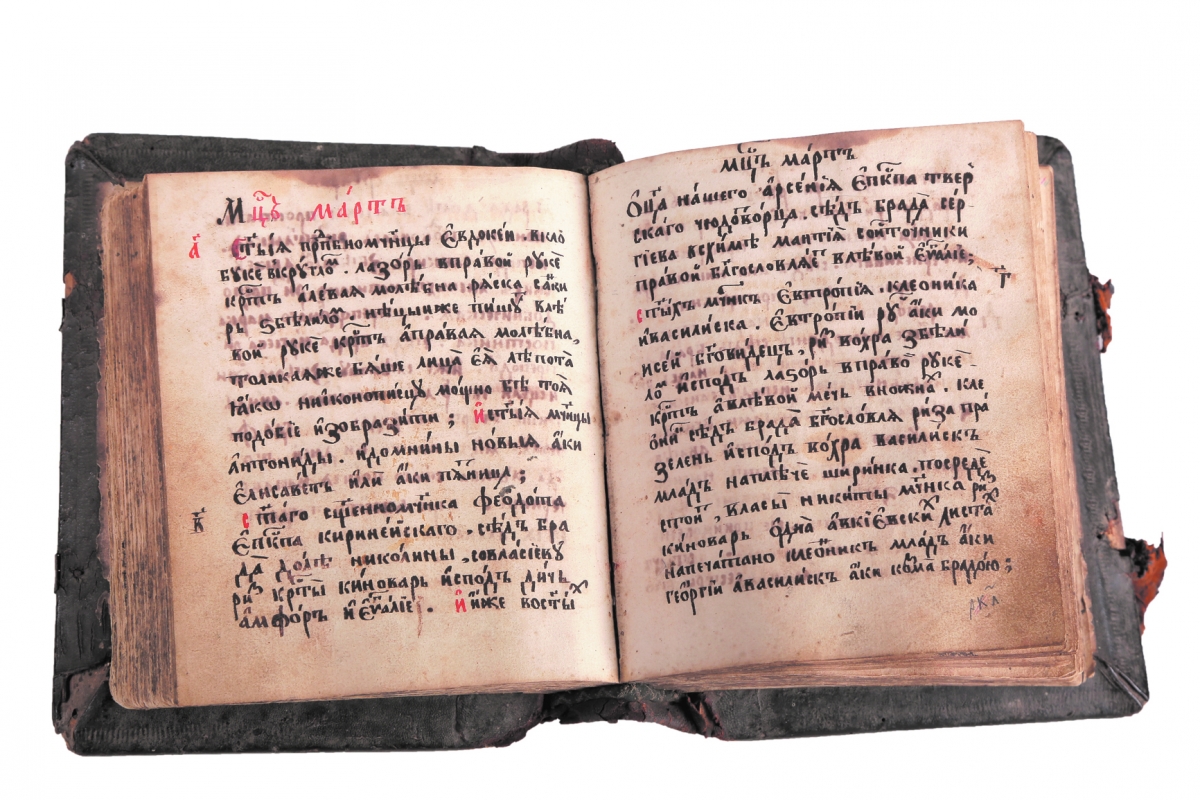 Мцъ мартъ
а҃ Стыя прпбномчницы Евдокеи. вкло
буке вкругло. лазорь вправой руке
кртъ алевая молебна ряска аки
ръ збелило нецыиже пишу вле
вой руке кртъ аправая молебна,
толикаяже бяше лица ея лепота
яко ниiконописцу мощно бе тоя
подобие изобразити; истыя мчницы
антониды. идомнины новыя аки
Елисаветъ или аки пятница;
в҃ стаго сщенномчнка феодота
епкпа киринейскаго. седъ бра
да доле николины, совласiеву
риз крты киноварь исподъ дичь
амфоръ и еѵалiе. Й иже восты
Мцъ мартъ
Оца нашего арсенiя епкпа твер
скаго чюдотворца. седъ брада сер
гiева всхиме мантiя соиточники
правой благословляет влевой еѵалiе;
г҃
стыхъ мчнкъ евтропiя. клеоника
ивасилиска. евтропiи рус аки мо
исей бговидецъ, риз вохра збели
ло исподъ лазорь вправо руке
кртъ авлевой мечь вножнах. кле
оник седъ брада бгословля риза пра
зелень исподъ вохра василискъ
младъ наплече ширинка. посреде
стоит, власы никиты мчнка риз
киноварь одна авкiевских листах
напечатано клеоникъ младъ аки
георгiй авасилискъ аки козма брадою;